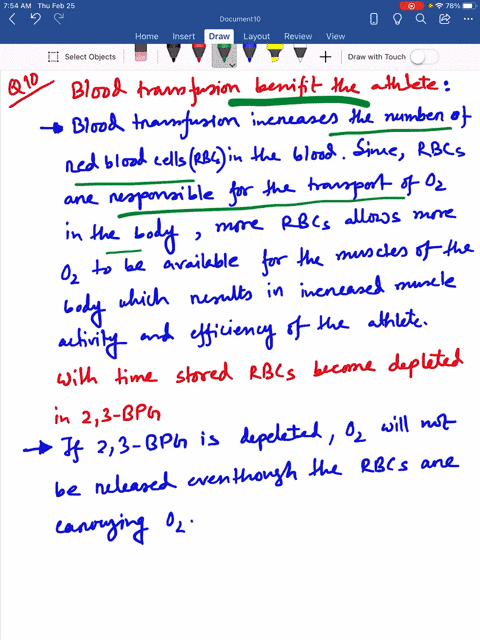 7:54 AM Thu Feb 25
78%
Document10
Home Insert Draw Layout Review View
Select Objects
Draw with Touch
Q10 Blood transfusion benifit the athlete:
→ Blood transfusion increases the number of
red blood cells (RBCs) in the blood. Since, RBCs
are responsible for the transport of O2
in the body, more RBCs allows more
O2 to be available for the muscles of the
body which results in increased muscle
activity and efficiency of the athlete.
With time stored RBCs become depleted
in 2,3-BPG
→ If 2,3-BPG is depeleted, O2 will not
be released eventhough the RBCs are
carrying O2.